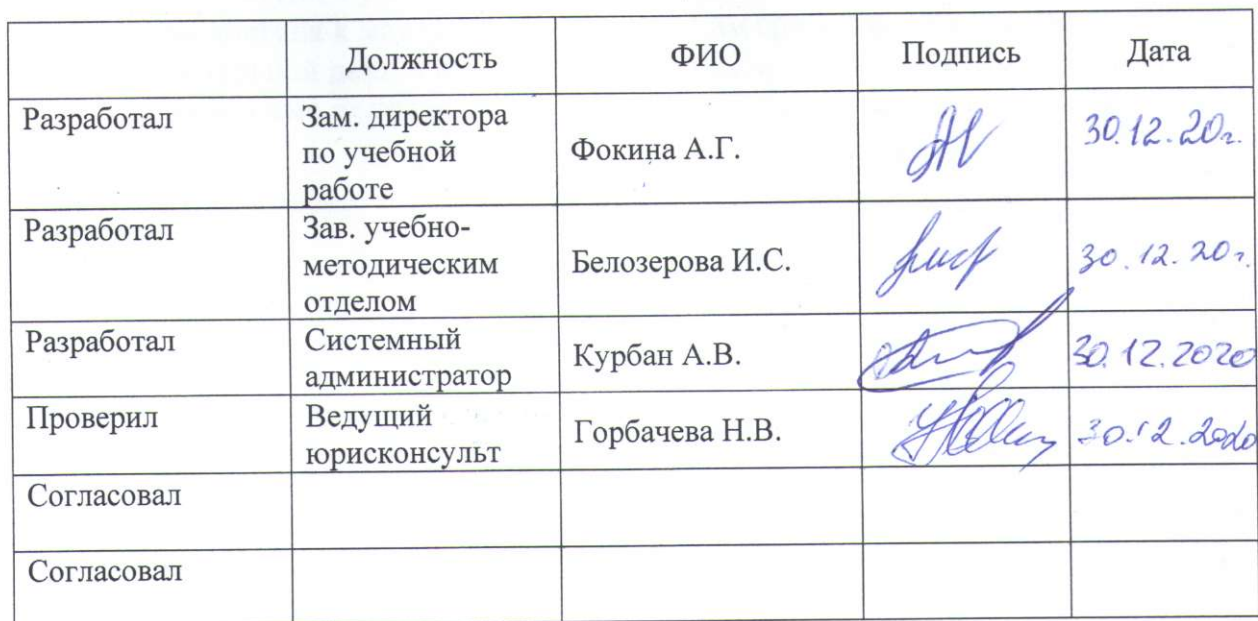 Должность ФИО Подпись Дата
Разработал Зам. директора
по учебной Фокина А.Г. 30.12.20г.
работе
Разработал Зав. учебно-
методическим Белозерова И.С. 30.12.20г.
отделом
Разработал Системный
администратор Курбан А.В. 30.12.2020
Проверил Ведущий
юрисконсульт Горбачева Н.В. 30.12.2020
Согласовал
Согласовал